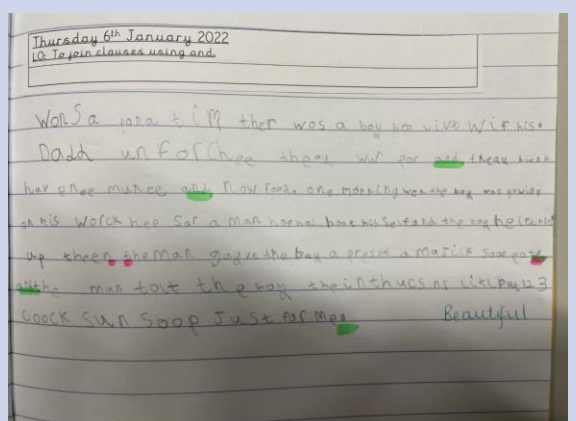 Thursday 6th January 2022
LO: To join clauses using and.
Won S a pona tim ther wos a boy hoo livt wif his
Dadd unforchee theay wr por and theay
hav enee munee and now food. one morning wen the boy was
on his worck hee Sor a man his self and the boy
up theen the man gayve the boy a preset a masick
and the man tolt the boy the 123
coock Sun Soop Just for mee
Beautiful